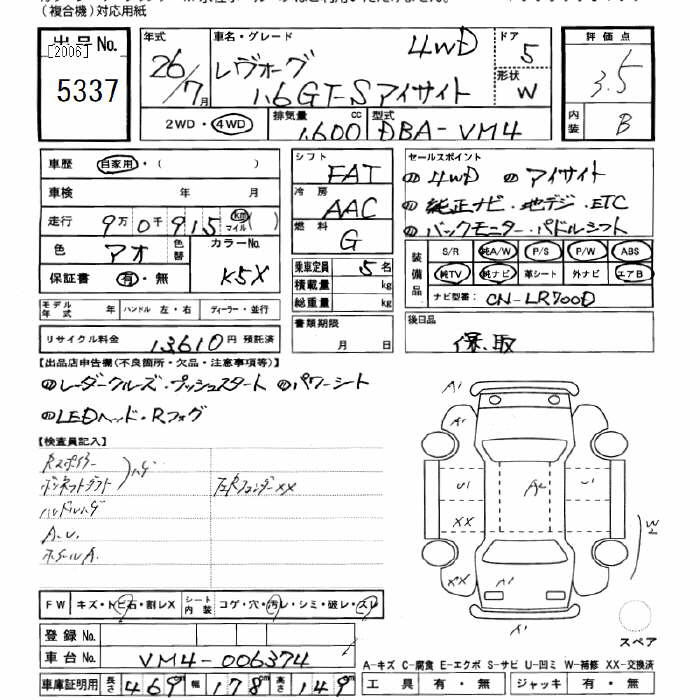 (複合機)対応用紙
出品No.
[2006]
5337
年式 26/7月
車名・グレード
レヴォーグ 4WD
1.6GT-Sアイサイト
ドア 5
形状 W
2WD・4WD
排気量 1,600cc
型式 DBA-VM4
評価点
3.5
内装 B
車歴 自家用・( )
車検 年 月
走行 9万0千915 km マイル( )
色 アオ
色替
カラーNo.
K5X
保証書 有・無
モデル年式 年 ハンドル 左・右 ディーラー・並行
リサイクル料金 13,610円 預託済
シフト FAT
冷房 AAC
燃料 G
乗車定員 5名
積載量 kg
総重量 kg
書類期限
月 日
セールスポイント
4WD アイサイト
純正ナビ・地デジ・ETC
バックモニター・パドルシフト
装備品
S/R 純A/W P/S P/W ABS
純TV 純ナビ 革シート 外ナビ エアB
ナビ型番: CN-LR700D
後日品
保、取
【出品店申告欄(不良箇所・欠品・注意事項等)】
レーダークルーズ・プッシュスタート パワーシート
LEDヘッド・Rフォグ
【検査員記入】
Rスポイラー
ハゲ
A.U.
ホイールA.
A1
A1
U1
A2
U1
XX
W
XX
A1
X1
スペア
FW キズ・トビ石・割レX
シート内装 コゲ・穴・汚レ・シミ・破レ・スレ
登録No.
車台No. VM4-006374
車庫証明用 長さ 469cm 幅 178cm 高さ 149cm
A-キズ C-腐食 E-エクボ S-サビ U-凹ミ W-補修 XX-交換済
工具 有・無 ジャッキ 有・無